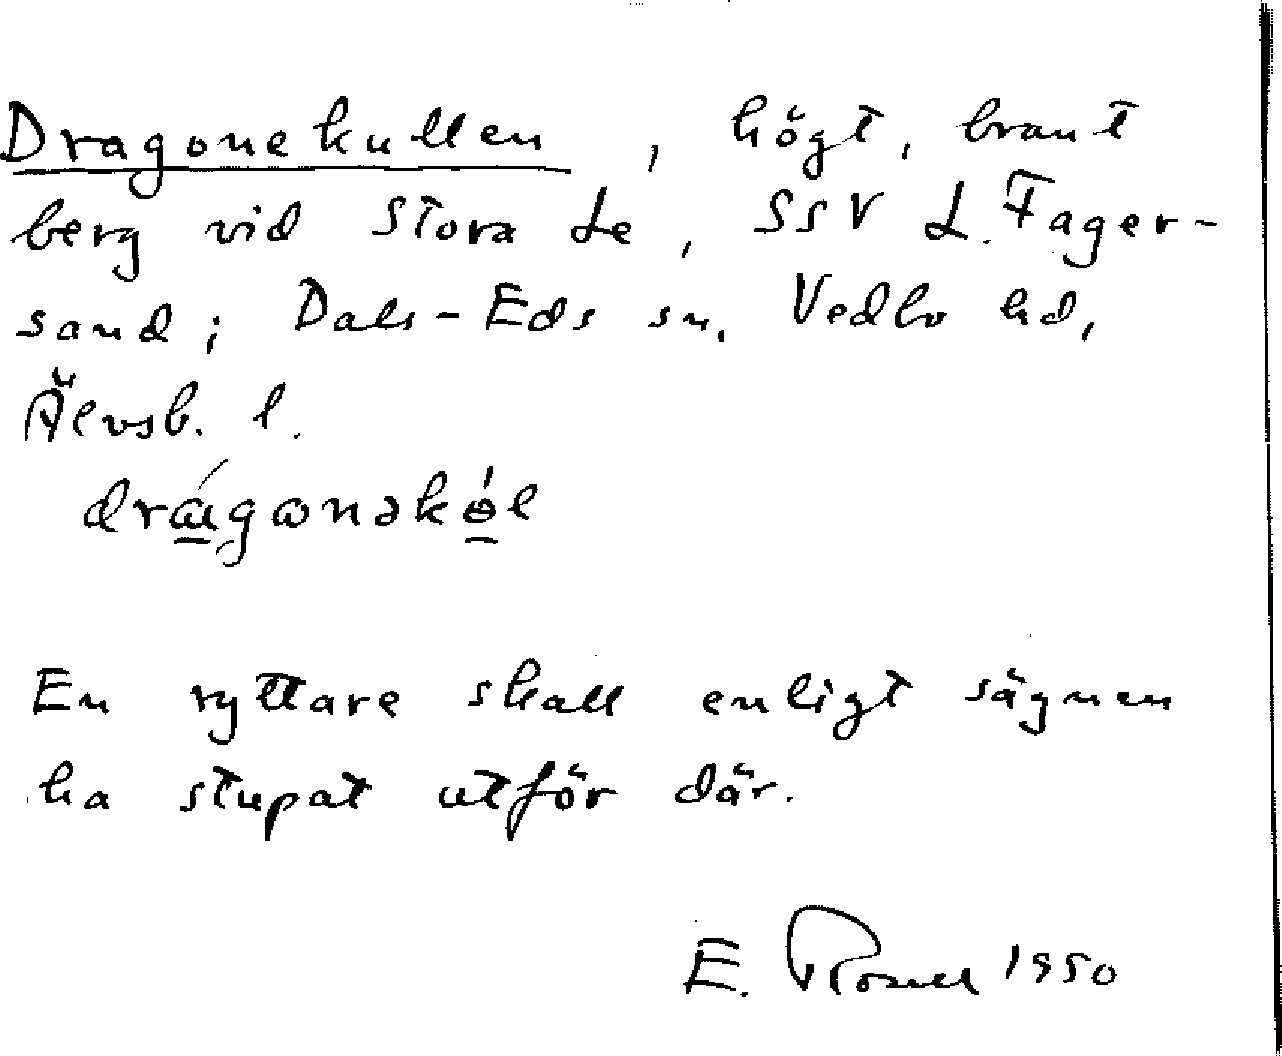 Dragonekullen, högt, brant
berg vid Stora Le, SSV L. Fager-
sand; Dals-Eds sn. Vedbo hd,
Älvsb. l.
En ryttare skall enligt sägnen
ha stupat utför där.
E. 1950